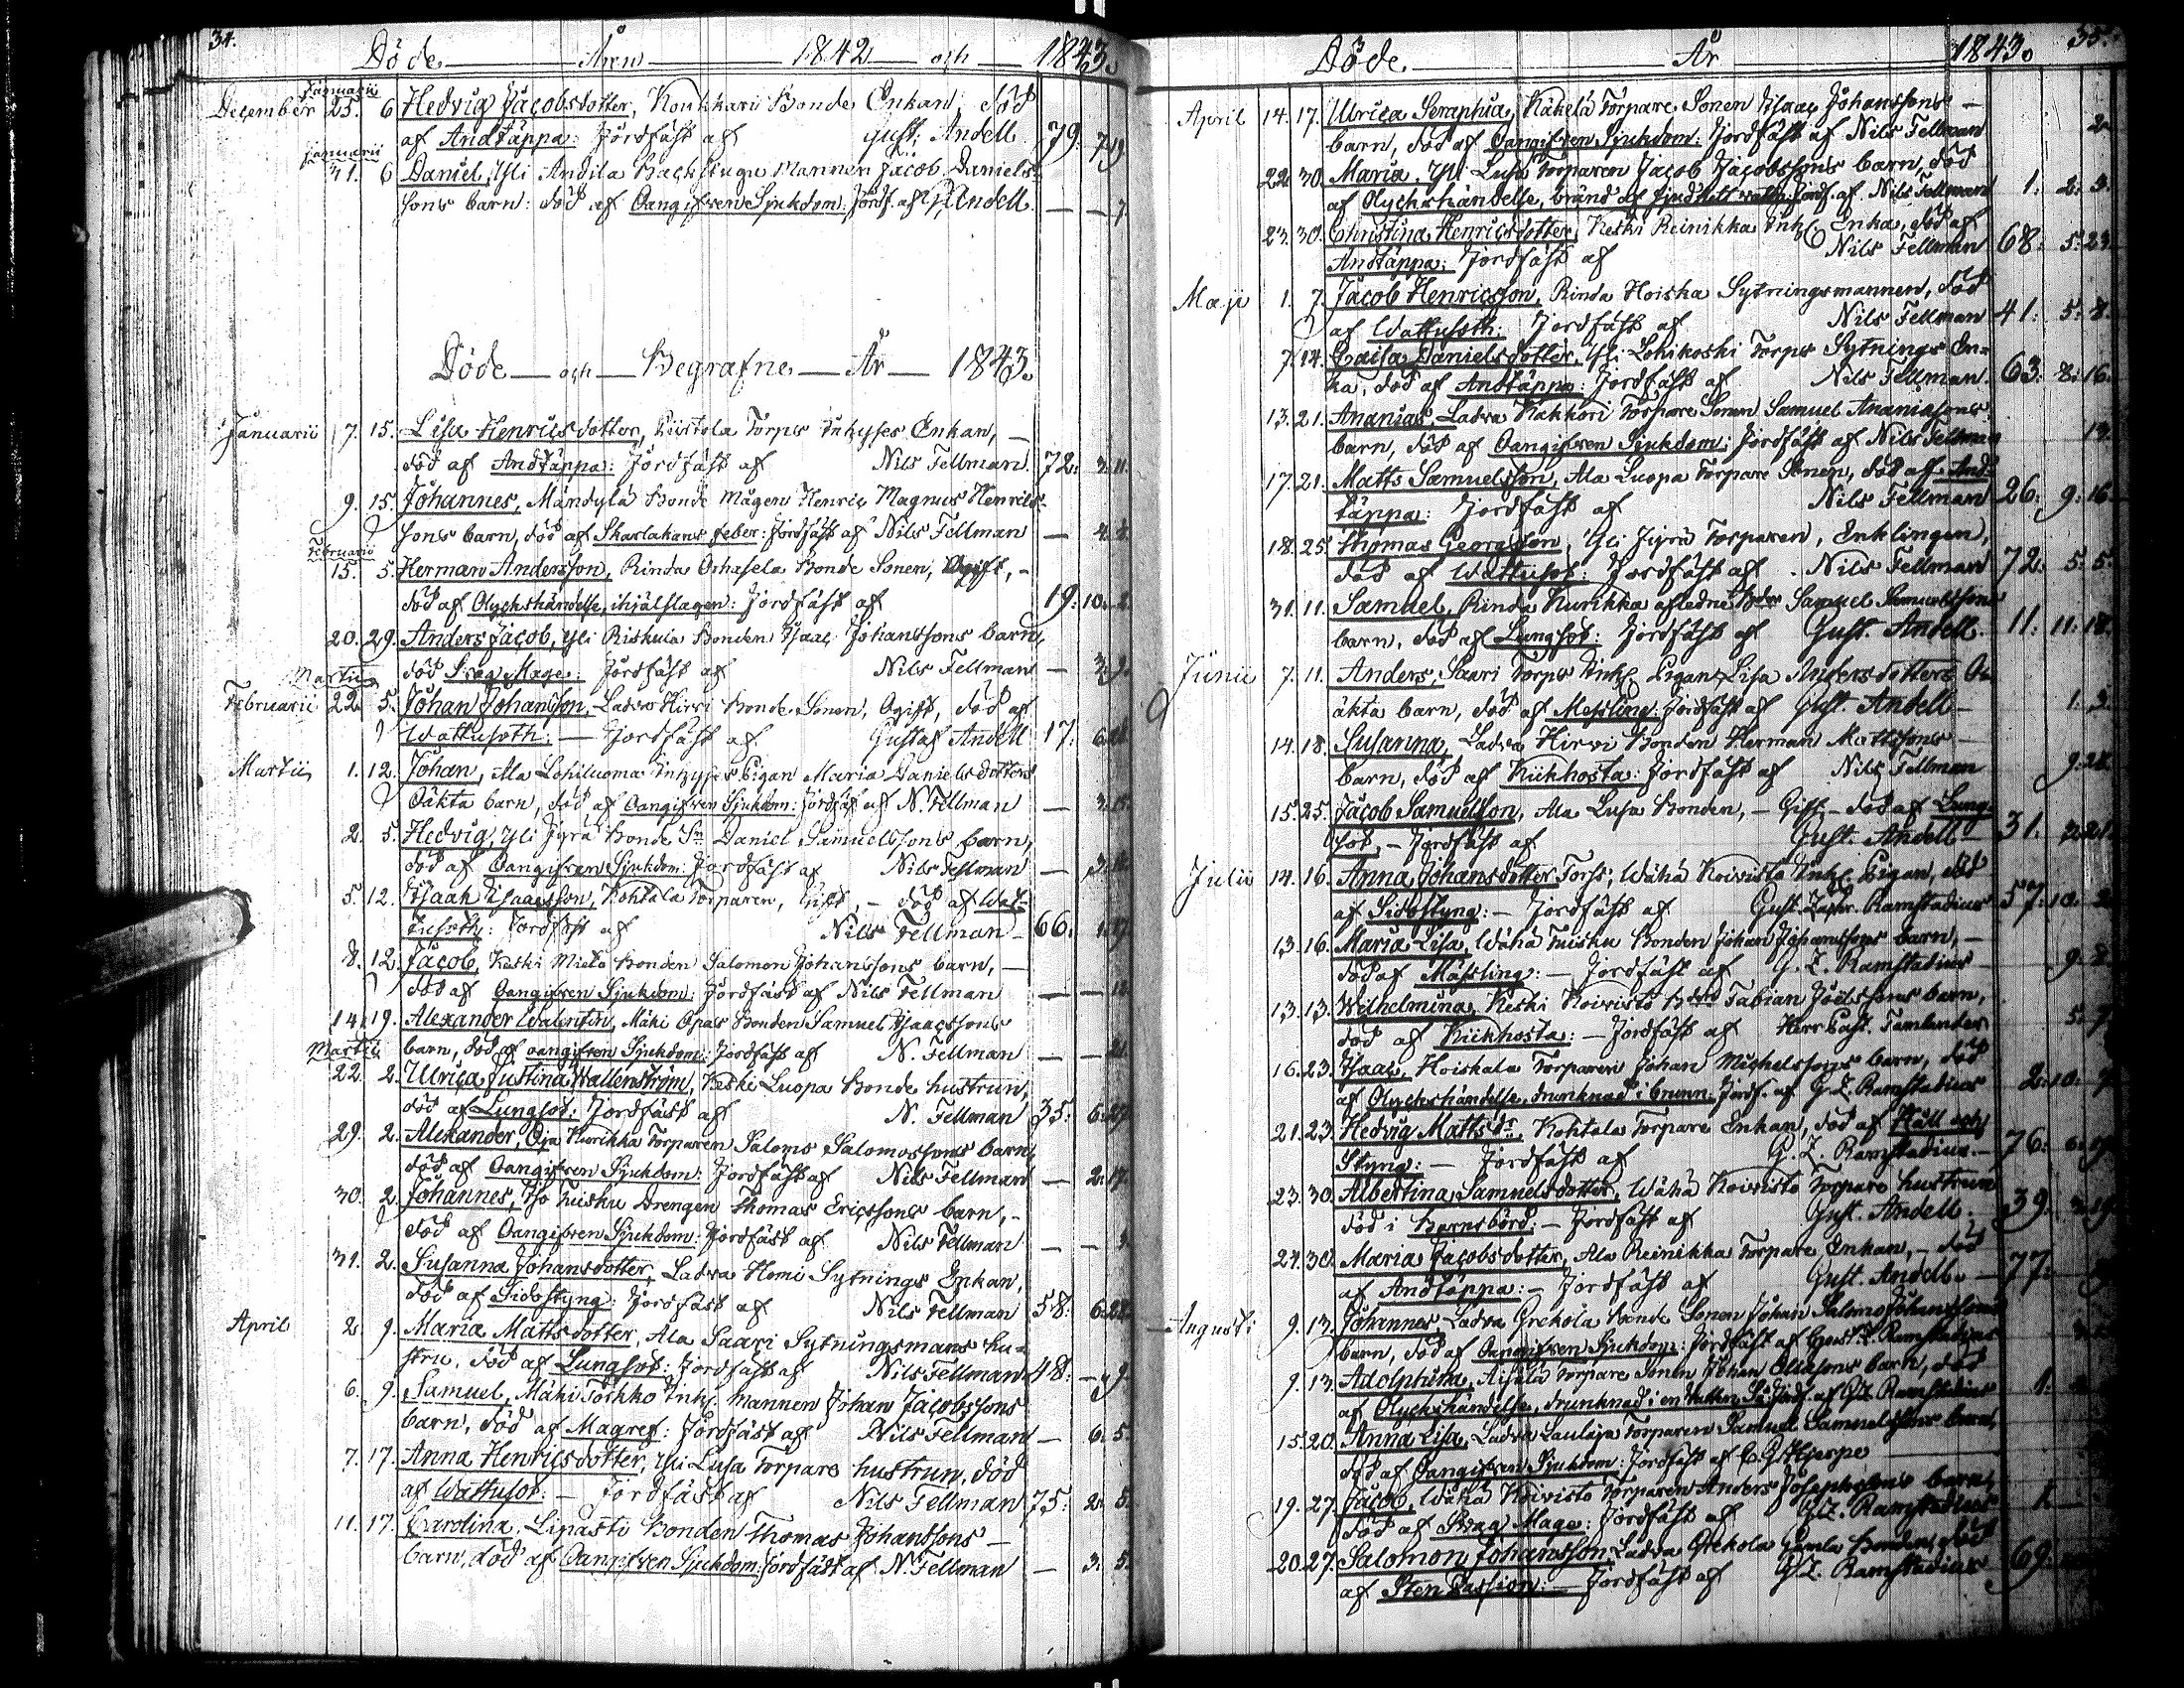 34.
Döde Åren 1842 och 1843.
Januarii
December 25. 6 Hedvig Jacobsdotter, Koukkari Bonde Enkan, död
af Andtäppa: Jordfäst af Gust. Andell 79. 7.19
Januarii
31. 6 Daniel, Yli Andila Backstugu Mannen Jacob Daniels-
sons barn: död af Oangifven Sjukdom: Jordf. af G. Andell. — — 7.
Döde och Begrafne År 1843.
Januarii 7. 15. Lisa Henricsdotter, Torps Inhyses Enkan, —
död af Andtäppa: Jordfäst af Nils Fellman. 72: 3. 11.
9. 15. Johannes, Mändylä Bonde Mågen Henric Magnus Henrics-
sons barn, död af Skarlakans feber: Jordfäst af Nils Fellman — 4. 8.
Februarii
15. 5. Herman Andersson, Rinda Orhasela Bonde Sonen, Ogift, -
död af Olyckshändelse, ihjälslagen: Jordfäst af 19: 10. 2.
20. 29. Anders Jacob, Yli Riskula Bonden Isaac Johanssons barn,
död Srag Mage: Jordfäst af Nils Fellman — 3. 9.
Martii
Februarii 22. 5. Johan Johansson, Ladva Hirvi Bonde Sonen, Ogift, död af
Wattusoth: — Jordfäst af Gustaf Andell 17: 6.
Martii 1. 12. Johan, Ala Lohiluoma Inhyses Pigan Maria Danielsdotters
Oäkta barn, död af Oangifven Sjukdom: Jordfäst af N. Fellman — 3. 15.
2. 5. Hedvig, Yli Jyrä Bonde Sn Daniel Samuelssons barn,
död af Oangifven Sjukdom: Jordfäst af Nils Fellman — 3.
5. 12. Isaak Isaacsson, Kohtala Torparen, Gift, - död af Wat-
tusoth: Jordfäst af Nils Fellman 66: 1. 17.
8. 12. Jacob, Keski Mieto Bonden Salomon Johanssons barn, —
död af Oangifven Sjukdom: Jordfäst af Nils Fellman — — 12
14. 19. Alexander Walentin, Mäki Opas Bonden Samuel Isaacssons
Martii barn, död af oangifven Sjukdom: Jordfäst af N. Fellman — — 21.
22. 2. Ulrica Justina Wallenström, Keski Luopa Bonde hustrun,
död af Lungsot: Jordfäst af N. Fellman 35: 6. 27
29. 2. Alexander, Oja Kurikka Torparen Saloms Salomossons barn,
död af Oangifven Sjukdom: Jordfäst af Nils Fellman — 2. 17.
30. 2. Johannes, Iso Tuisku Drengen Thomas Ericssons barn, -
död af Oangifven Sjukdom: Jordfäst af Nils Fellman — —
31. 2. Susanna Johansdotter, Ladva Homi Sytnings Enkan,
död af Sidostyng: Jordfäst af Nils Fellman 58: 6. 28
April 2. 9. Maria Mattsdotter, Ala Saari Sytningsmans hu-
stru, död af Lungsot: Jordfäst af Nils Fellman 48: — 9.
6. 9. Samuel, Mäki Torkko Inh. Mannen Johan Jacobssons
barn, död af Magref: Jordfäst af Nils Fellman — 6. 5.
7. 17. Anna Henricsdotter, Yli Lusa Torpare hustrun, död
af Wattusot: — Jordfäst af Nils Fellman 75: 2. 5.
11. 17. Carolina, Lipasti Bonden Thomas Johanssons —
barn, död af Oangifven Sjukdom: Jordfäst af N. Fellman — 3. 5.
35.
Döde År 1843.
April 14. 17. Ulrica Seraphia, Käkelä Torpare Sonen Isaac Johanssons —
barn, död af Oangifven Sjukdom: Jordfäst af Nils Fellman 2.
22. 30. Maria, Yli Lusa Torparen Jacob Jacobssons barn, död
af Olyckshändelse, bränd af sjudhett vatten: Jordf. af Nils Fellman 1. 2. 3.
23. 30. Christina Henricsdotter, Keski Reinikka Inh. Enka, död af
Andtäppa: Jordfäst af Nils Fellman 68: 5. 23.
Maji 1. 7. Jacob Henricsson, Rinda Hoiska Sytningsmannen, död
af Wattusoth: Jordfäst af Nils Fellman 41: 5. 8.
7. 14. Caisa Danielsdotter, Yli Lohikoski Torps Sytnings En-
ka, död af Andtäppa: Jordfäst af Nils Fellman. 63: 8. 16.
13. 21. Ananias, Ladva Kakkori Torpare Sonen Samuel Ananiasons
barn, död af Oangifven Sjukdom: Jordfäst af Nils Fellman 13.
17. 21. Matts Samuelsson, Ala Luopa Torpare Sonen, död af And-
täppa: Jordfäst af Nils Fellman 26: 9. 16.
18. 25. Thomas Georgsson, Yli Jyrä Torparen, Enklingen,
död af Wattusot: Jordfäst af Nils Fellman 72: 5. 5.
31. 11. Samuel, Rinda Kurikka afledne Samuel Samuelssons
barn, död af Lungsot: Jordfäst af Gust. Andell. 11: 11. 18.
Junii 7. 11. Anders, Saari Torps Inh. Pigan Lisa Andersdotters O-
äkta barn, död af Messling: Jordfäst af Gust. Andell 1. 3.
14. 18. Susanna, Ladva Hirvi Bonden Herman Mattssons —
barn, död af Kikhosta: Jordfäst af Nils Fellman 9. 28.
15. 25. Jacob Samuelsson, Ala Lusa Bonden, - Gift, - död af Lung-
sot, - Jordfäst af Gust. Andell 31: 2. 21.
Julii 14. 16. Anna Johansdotter Forss, Wähä Koivisto Inh. Pigan, död
af Sidostyng: - Jordfäst af Gust. Zachr. Ramstadius 57: 10. 2.
13. 16. Maria Lisa, Wähä Tuisku Bonden Johan Johanssons barn, -
död af Mässling: - Jordfäst af G. Z. Ramstadius 9. 8.
13. 13. Wilhelmina, Keski Koivisto Bdn Fabian Joelssons barn,
död af Kikhosta: - Jordfäst af Herr Past. Tamlander 5. 7.
16. 23. Isaac, Hoiskala Torparen Johan Michelssons barn, död
af Olyckshändelse, drunknad i brunn: Jordf. af G Z. Ramstadius 2. 10. 7.
21. 23. Hedvig Mattsdr, Kohtala Torpare Enkan, död af Håll och
Styng: - Jordfäst af G. Z. Ramstadius. 76: 6. 19.
23. 30. Albertina Samuelsdotter, Wähä Koivisto Torpare hustrun
död i Barnsbörd: - Jordfäst af Gust. Andell. 39. 3. 19.
24. 30. Maria Jacobsdotter, Ala Reinikka Torpare Enkan, - död
af Andtäppa: - Jordfäst af Gust. Andell. 77:
Augusti 9. 13. Johannes, Ladva Grekola Bonde Sonen Johan Salomo Johanssons
barn, död af Oangifven Sjukdom: Jordfäst af Gust. Z. Ramstadius
9. 13. Adolphina, Torpare Sonen Johan barn, död
af Olyckshändelse, drunknad i en Jordf. af G Z. Ramstadius 1.
15. 20. Anna Lisa, Ladva Laulaja Torparen Samuel Samuelssons barn,
död af Oangifven Sjukdom: Jordfäst af
19. 27. Jacob, Wähä Koivisto Torparen Anders Josephssons barn,
död af Srag Mage: Jordfäst af G Z. Ramstadius 1.
20. 27. Salomon Johansson, Ladva Grekola Gamla Bonden, död
af Sten Passion: - Jordfäst af G Z. Ramstadius 69: